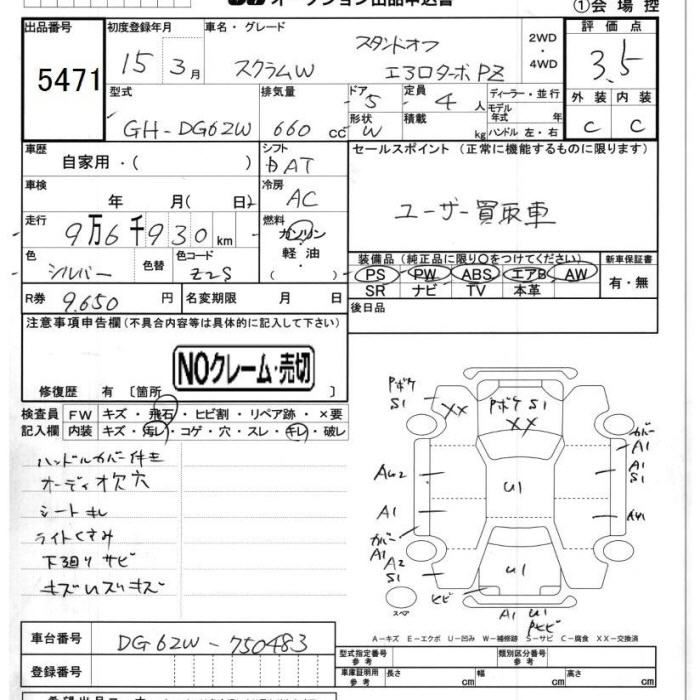 オークション出品申込書
①会場控
出品番号 5471
初度登録年月 15年3月
車名・グレード スクラムW スタンドオフ エアロターボPZ
2WD・4WD
評価点 3.5
型式 GH-DG62W
排気量 660cc
ドア 5
形状 W
定員 4人
積載 kg
ディーラー・並行
モデル年式 年
ハンドル 左・右
外装 C 内装 C
車歴 自家用・( )
シフト AT
セールスポイント (正常に機能するものに限ります)
ユーザー買取車
車検 年 月( 日)
冷房 AC
走行 9万6千930km
燃料 ガソリン・軽油・( )
色 シルバー 色替 色コード Z2S
装備品 (純正品に限り○をつけてください)
PS PW ABS エアB AW
SR ナビ TV 本革
新車保証書 有・無
R券 9,650円
名変期限 月 日
後日品
注意事項申告欄 (不具合内容等は具体的に記入して下さい)
NOクレーム・売切
修復歴 有 〔箇所 〕
検査員記入欄
FW キズ・飛石・ヒビ割・リペア跡・×要
内装 キズ・汚レ・コゲ・穴・スレ・キレ・破レ
ハンドルカバー付キ
オーディオ欠穴
シートキレ
ライトくすみ
下廻りサビ
キズ
Pボケ S1
XX
Pボケ S1
XX
カバー A1
A1 S1
A42
A1
U1
カバー A1
A2 S1
U1
ヒビ
スペア
A1 U1
Pヒビ
A-キズ E-エクボ U-凹み W-補修跡 S-サビ C-腐食 XX-交換済
車台番号 DG62W-750483
登録番号
型式指定番号 参考
類別区分番号 参考
車庫証明用 参考 長さ cm 幅 cm 高さ cm